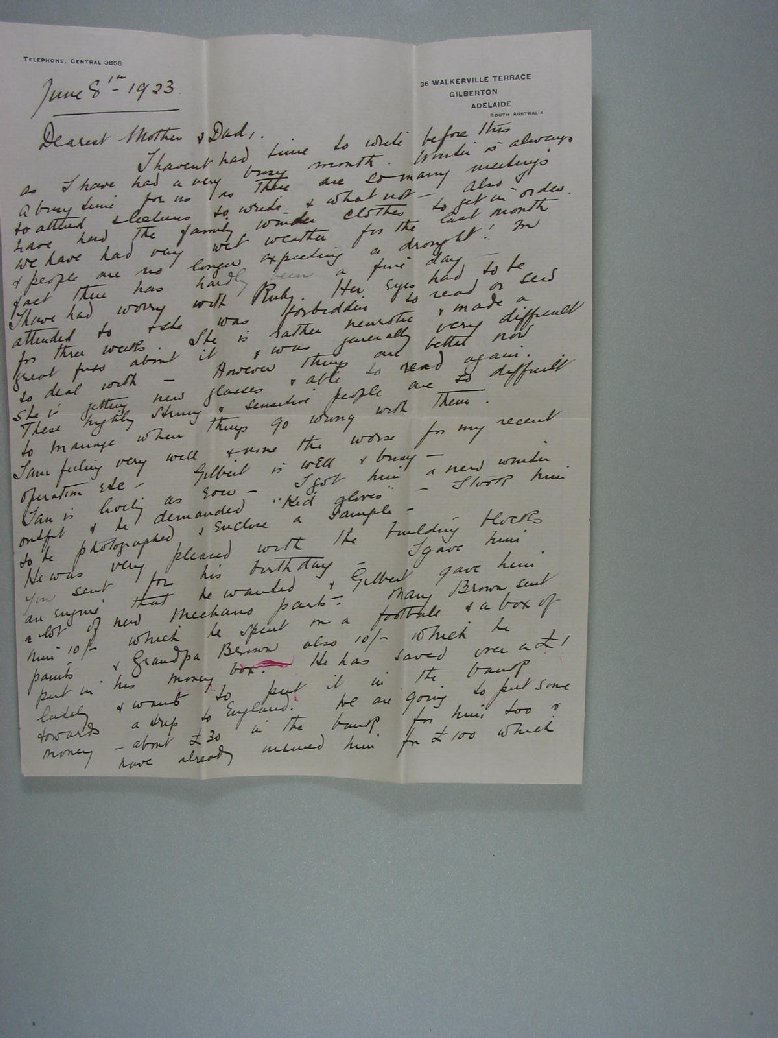 TELEPHONE, CENTRAL 3858
36 WALKERVILLE TERRACE
GILBERTON
ADELAIDE
SOUTH AUSTRALIA
June 8th 1923
Dearest Mother & Dad,
I havent had time to write before this
as I have had a very busy month. Winter is always
a busy time for us as there are so many meetings
to attend & lectures to write & what not - Also I
have had the family winter clothes to get in order.
We have had very wet weather for the last month
& people are no longer expecting a drought! In
fact there has hardly been a fine day -
I have had worry with Ruby. Her eyes had to be
attended to & she was forbidden to read or sew
for three weeks. She is rather neurotic & made a
great fuss about it & was generally very difficult
to deal with - However things are better now
She is getting new glasses & able to read again.
These highly strung & sensitive people are so difficult
to manage when things go wrong with them.
I am feeling very well & none the worse for my recent
operation etc! Gilbert is well & busy -
Ian is lively as ever - I got him a new winter
outfit & he demanded "Kid gloves" - I took him
to be photographed & enclose a sample -
He was very pleased with the building blocks
you sent for his birthday - I gave him
an engine that he wanted & Gilbert gave him
a lot of new Meccano parts - Mary Brown sent
him 10/- which he spent on a football & a box of
paints & Grandpa Brown also 10/- which he
put in his money box. He has saved over a £1
lately & wants to put it in the bank
towards a trip to England. We are going to put some
money - about £30 in the bank for him too &
have already insured him for £100 which